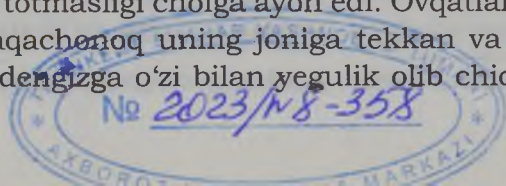 totmasligi cholga ayon edi. Ovqatlan
qachonoq uning joniga tekkan va
dengizga o‘zi bilan yegulik olib chiq
№ 2023/N8-358
AXBOROT
MARKAZI